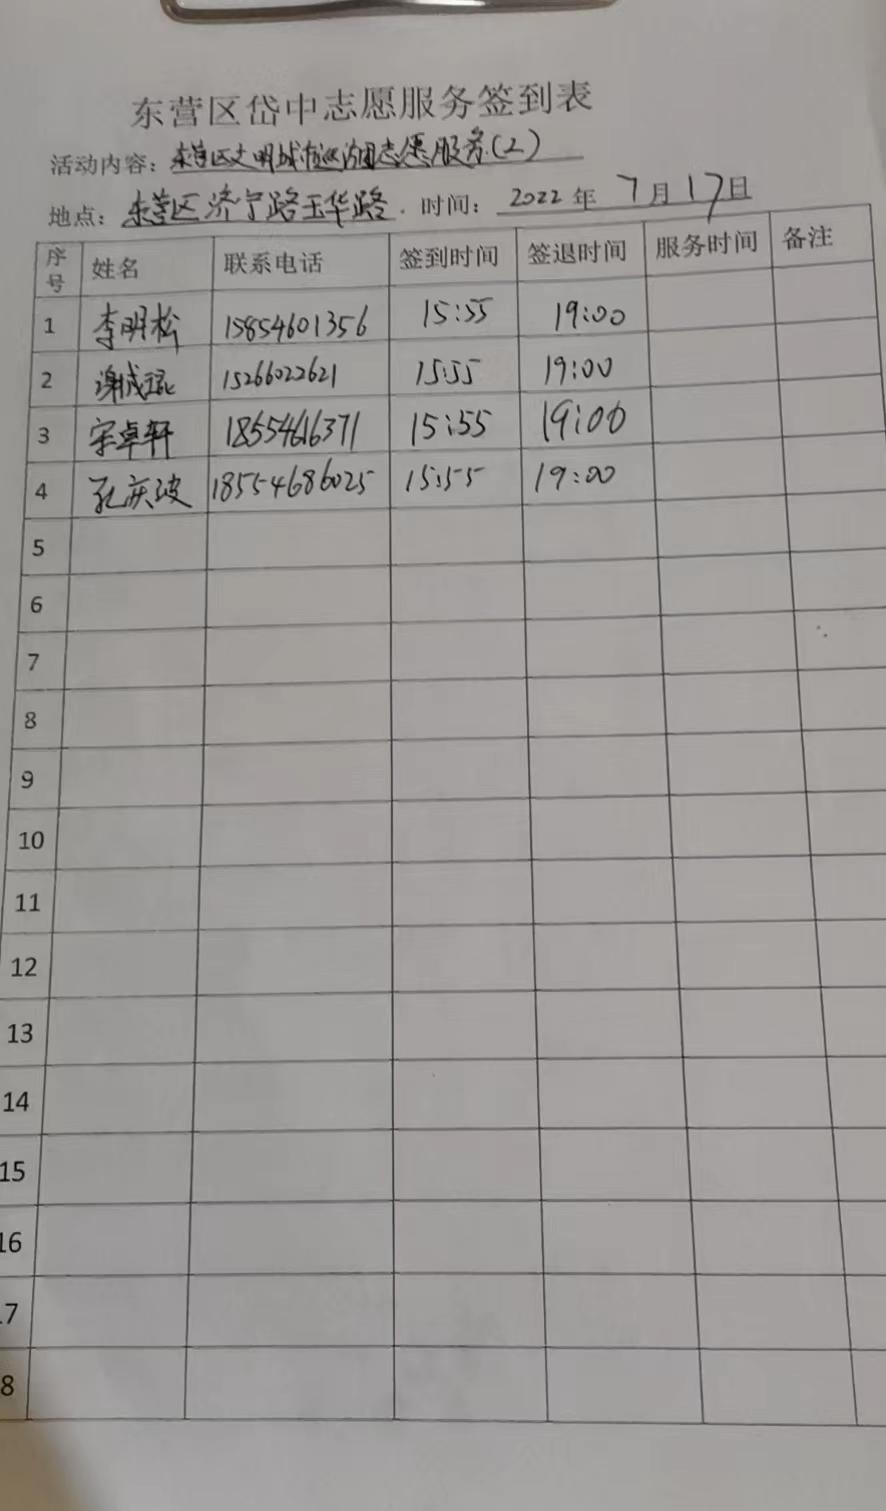 东营区岱中志愿服务签到表
活动内容：东营区文明城市巡访团志愿服务（2）
地点：东营区济宁路玉华路. 时间：2022年7月17日
序号 姓名 联系电话 签到时间 签退时间 服务时间 备注
1 李明松 15854601356 15:55 19:00
2 谢成琨 15266022621 15:55 19:00
3 宋卓轩 18554616371 15:55 19:00
4 孔庆波 18554686025 15:55 19:00
5
6
7
8
9
10
11
12
13
14
15
16
7
8